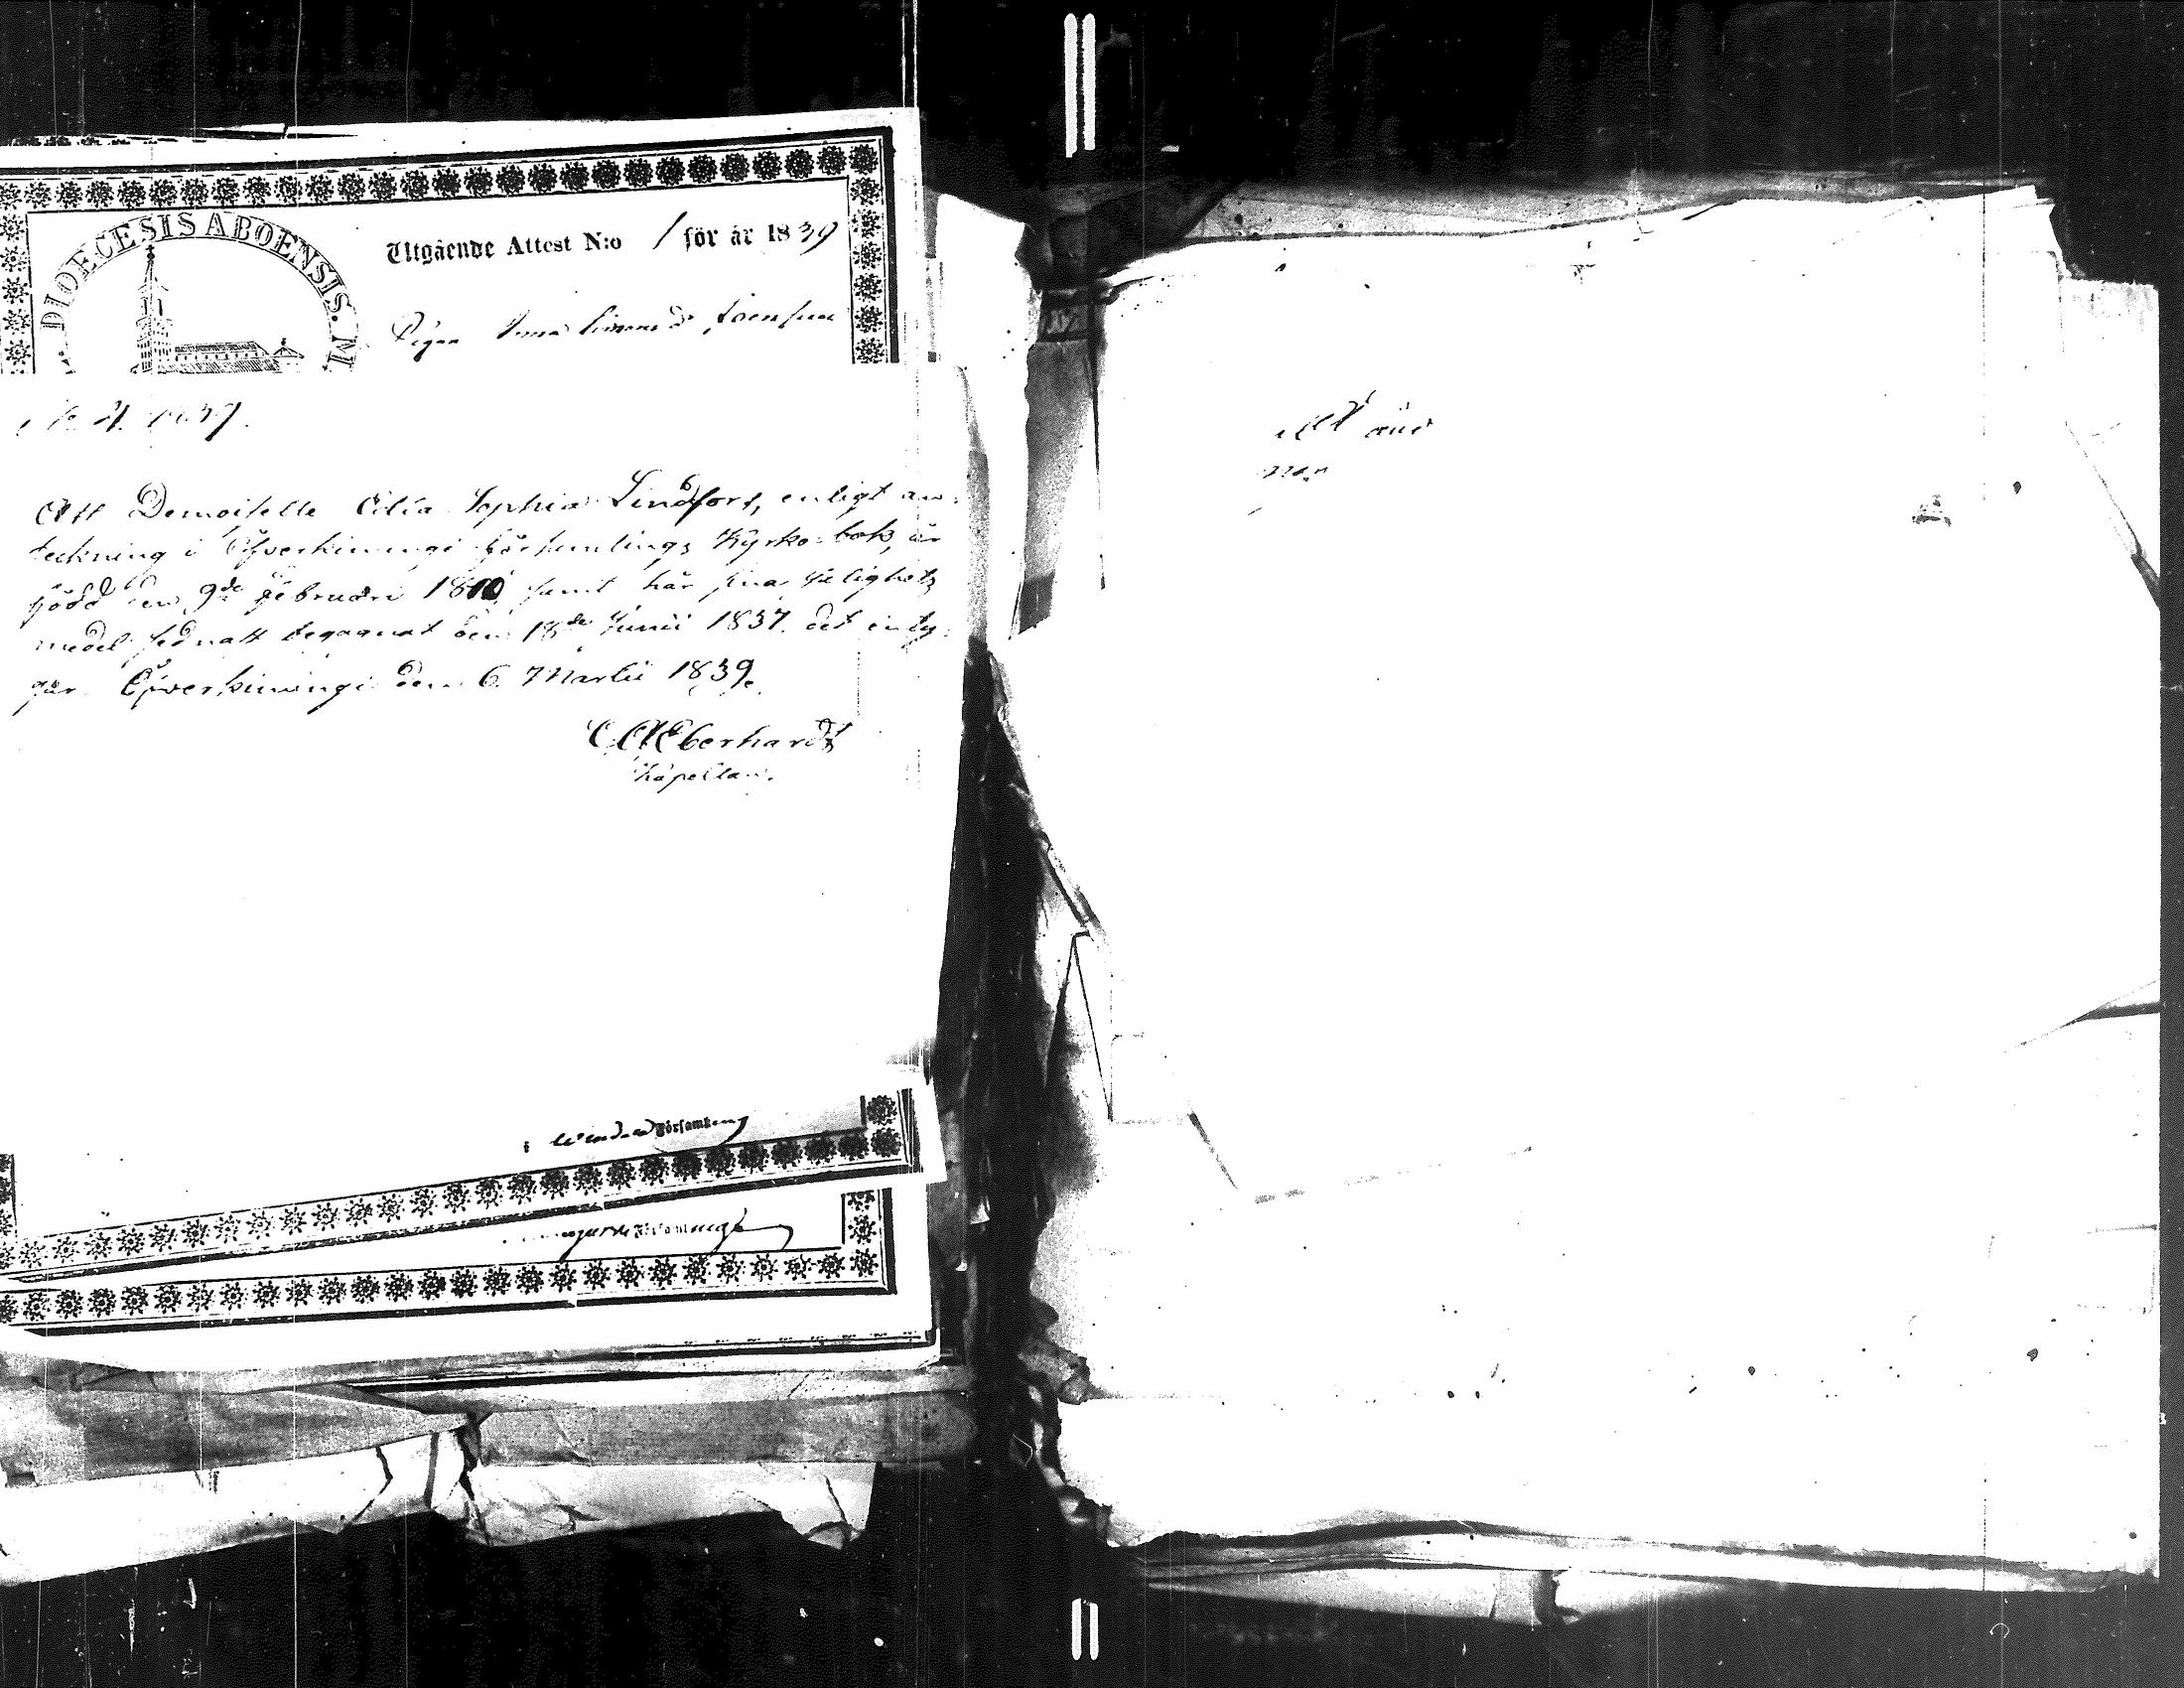 DIOECESIS ABOENSIS. M
Utgående Attest N:o 1 för år 1839
Pigan Anna
N. 4. 1839.
Att Demoiselle Edla Sophia Lindfors, enligt an-
teckning i Öfverkiimingi Församlings Kyrko-bok, är
född den 9de Februari 1810, samt har sina salighets
medel sednast begagnat den 18de Junii 1837. det inty-
gar Öfverkiimingi den 6 Martii 1839.
C A Eberhardt
Kapellan.
i Församling
Församling